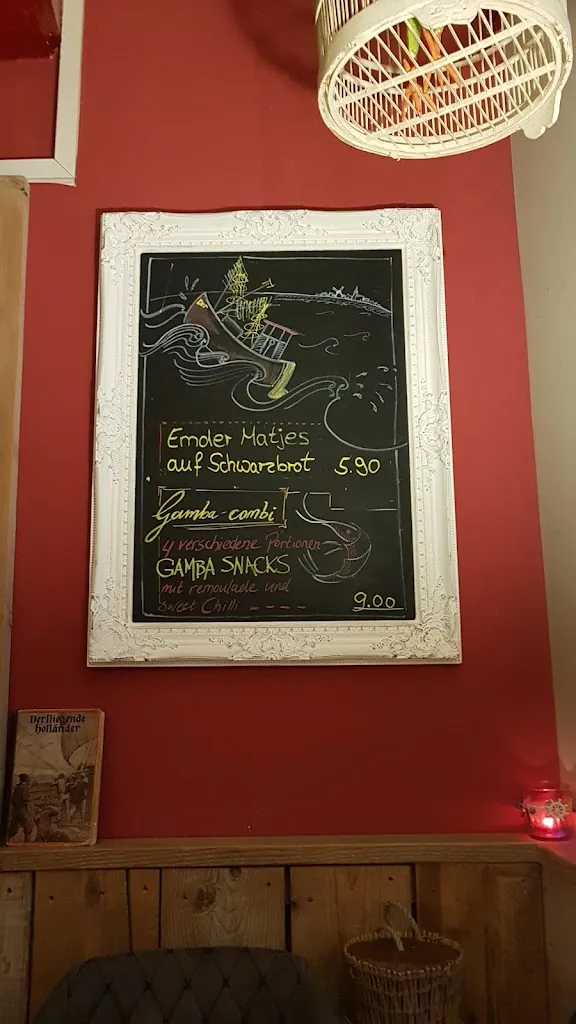 Emder Matjes
auf Schwarzbrot 5.90
Gamba-combi
4 verschiedene Portionen
GAMBA SNACKS
mit remoulade und
Sweet Chilli ----
9.00
Der fliegende
Holländer